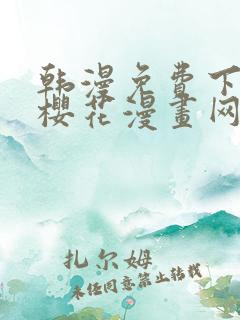 韩漫免费下
樱花漫畫网
扎尔姆
未经同意禁止转载